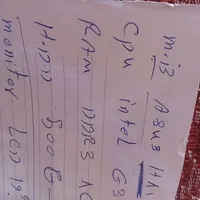 M.B ASUS H61
CPU intel G3
RAM DDR3 1G
H.DD 500G
monitor LCD 19.